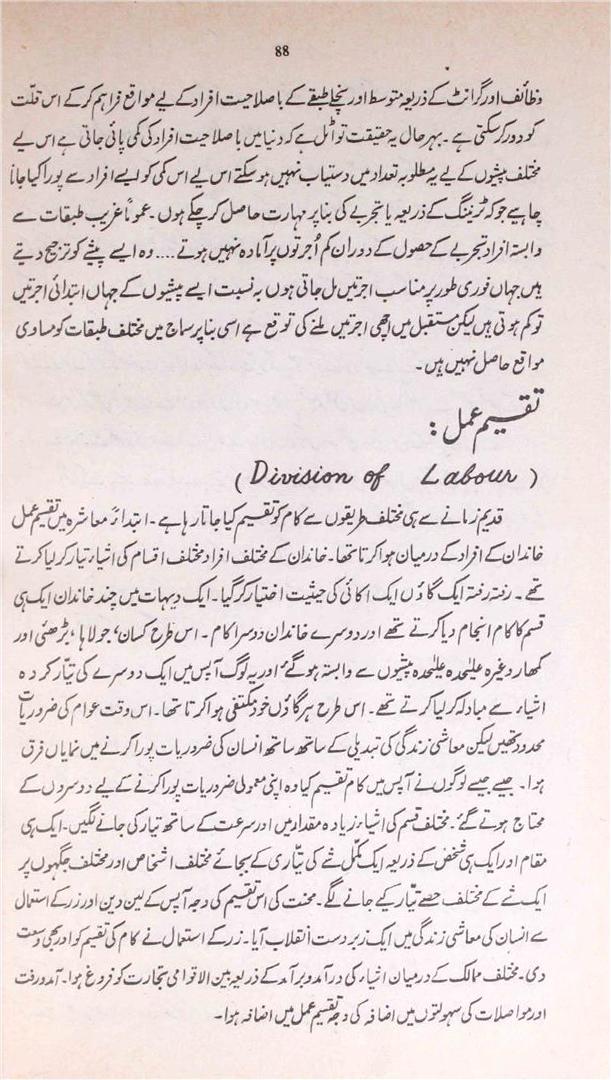 88
وظائف اور گرانٹ کے ذریعہ متوسط اور نچلے طبقے کے با صلاحیت افراد کے لیے مواقع فراہم کر کے اس قلّت
کو دور کر سکتی ہے ۔ بہر حال یہ حقیقت تو اٹل ہے کہ دنیا میں با صلاحیت افراد کی کمی پائی جاتی ہے اس لیے
مختلف پیشوں کے لیے یہ مطلوبہ تعداد میں دستیاب نہیں ہو سکتے اس لیے اس کمی کو ایسے افراد سے پورا کیا جانا
چاہیے جو کہ ٹریننگ کے ذریعہ یا تجربے کی بنا پر مہارت حاصل کر چکے ہوں ۔ عموماً غریب طبقات سے
وابستہ افراد تجربے کے حصول کے دوران کم اُجرتوں پر آمادہ نہیں ہوتے .... وہ ایسے پیشے کو ترجیح دیتے
ہیں جہاں فوری طور پر مناسب اجرتیں مل جاتی ہوں بہ نسبت ایسے پیشیوں کے جہاں ابتدائی اجرتیں
تو کم ہوتی ہیں لیکن مستقبل میں اچھی اجرتیں ملنے کی توقع ہے اسی بنا پر سماج میں مختلف طبقات کو مساوی
مواقع حاصل نہیں ہیں ۔
تقسیم عمل :
( Division of Labour )
قدیم زمانے سے ہی مختلف طریقوں سے کام کو تقسیم کیا جاتا رہا ہے ۔ ابتداءً معاشرہ میں تقسیم عمل
خاندان کے افراد کے درمیان ہوا کرتا تھا ۔ خاندان کے مختلف افراد مختلف اقسام کی اشیاء تیار کر لیا کرتے
تھے ۔ رفتہ رفتہ ایک گاؤں ایک اکائی کی حیثیت اختیار کر گیا ۔ ایک دیہات میں چند خاندان ایک ہی
قسم کا کام انجام دیا کرتے تھے اور دوسرے خاندان دوسرا کام ۔ اس طرح کسان، جولاہا ، بڑھئی اور
کمھار وغیرہ علیٰحدہ علیٰحدہ پیشوں سے وابستہ ہو گئے اور یہ لوگ آپس میں ایک دوسرے کی تیّار کردہ
اشیاء سے مبادلہ کر لیا کرتے تھے ۔ اس طرح ہر گاؤں خود مکتفی ہوا کرتا تھا ۔ اس وقت عوام کی ضروریات
محدود تھیں لیکن معاشی زندگی کی تبدیلی کے ساتھ ساتھ انسان کی ضروریات پورا کرنے میں نمایاں فرق
ہوا ۔ جیسے جیسے لوگوں نے آپس میں کام تقسیم کیا وہ اپنی معمولی ضروریات پورا کرنے کے لیے دوسروں کے
محتاج ہوتے گئے ۔ مختلف قسم کی اشیاء زیادہ مقدار میں اور سرعت کے ساتھ تیار کی جانے لگیں ۔ ایک ہی
مقام اور ایک ہی شخص کے ذریعہ ایک مکمّل شے کی تیّاری کے بجائے مختلف اشخاص اور مختلف جگہوں پر
ایک شے کے مختلف حصے تیّار کیے جانے لگے ۔ محنت کی اس تقسیم کی وجہ آپس کے لین دین اور زر کے استعمال
سے انسان کی معاشی زندگی میں ایک زبردست انقلاب آیا ۔ زر کے استعمال نے کام کی تقسیم کو اور بھی وسعت
دی ۔ مختلف ممالک کے درمیان اشیاء کی درآمد و برآمد کے ذریعہ بین الاقوامی تجارت کو فروغ ہوا ۔ آمدورفت
اور مواصلات کی سہولتوں میں اضافہ کی وجہ تقسیم عمل میں اضافہ ہوا ۔